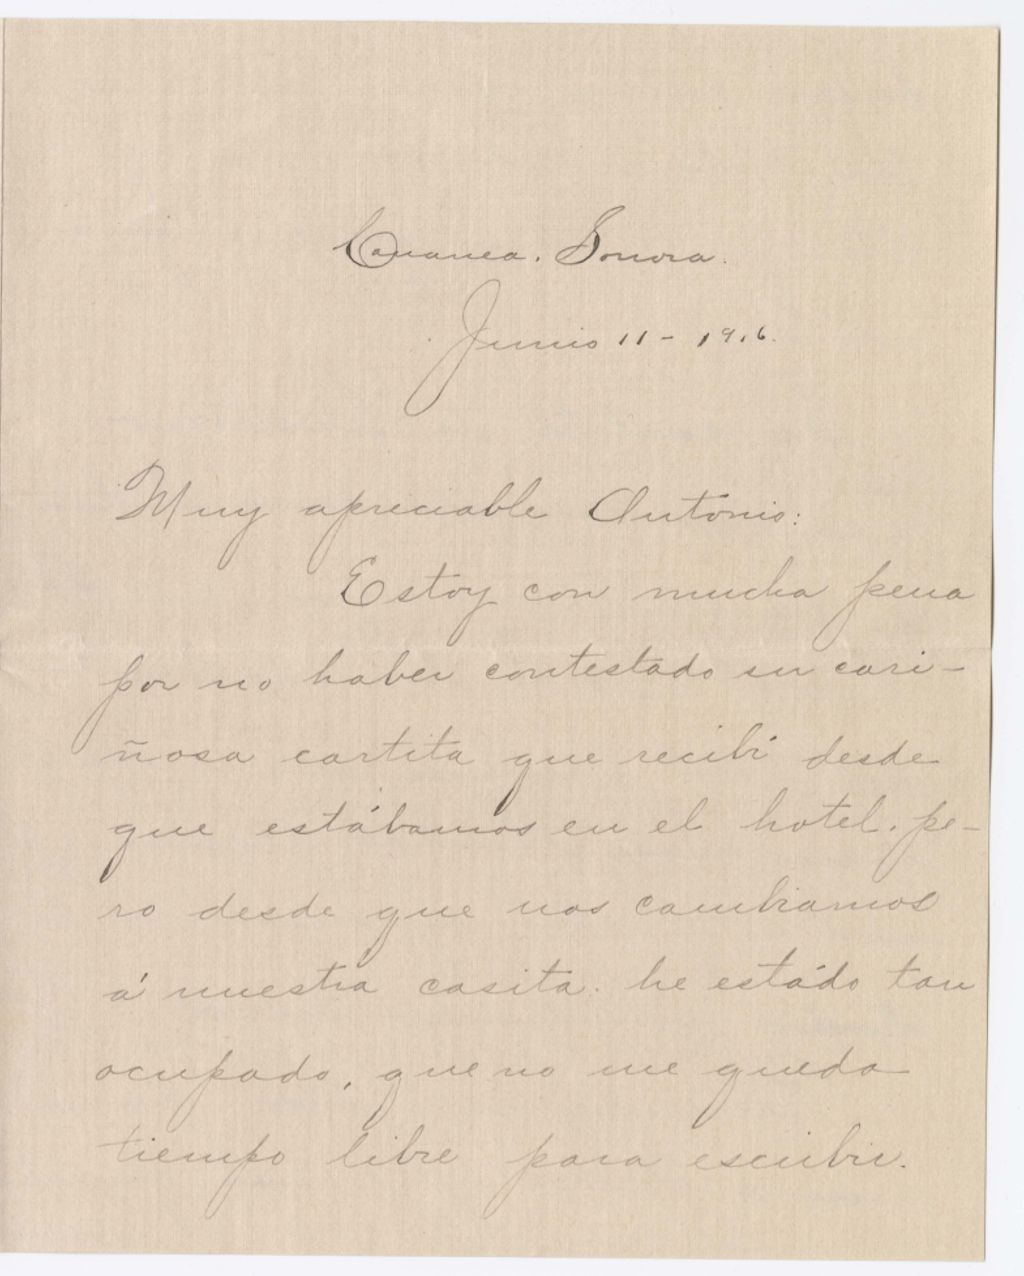 Cananea. Sonora.
Junio 11 - 1916.
Muy apreciable Antonio:
Estoy con mucha pena
por no haber contestado su cari-
ñosa cartita que recibí desde
que estábamos en el hotel. pe-
ro desde que nos cambiamos
á nuestra casita. he estádo tan
ocupado, que no me queda
tiempo libre para escribir.